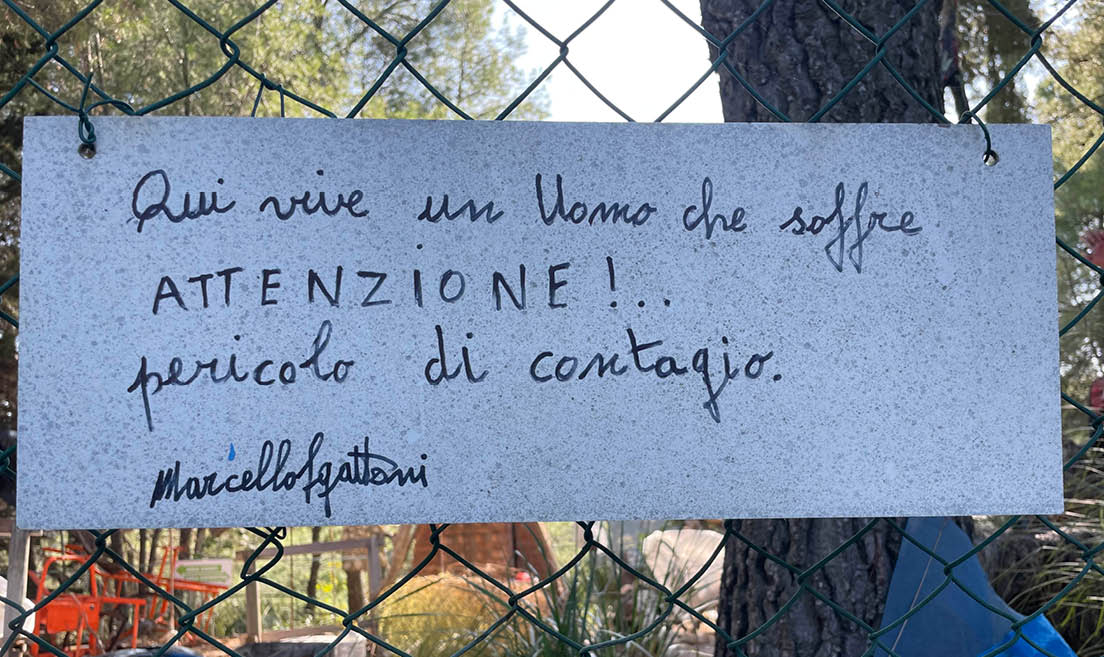 Qui vive un Uomo che soffre
ATTENZIONE!..
pericolo di contagio.
Marcello Sgattoni